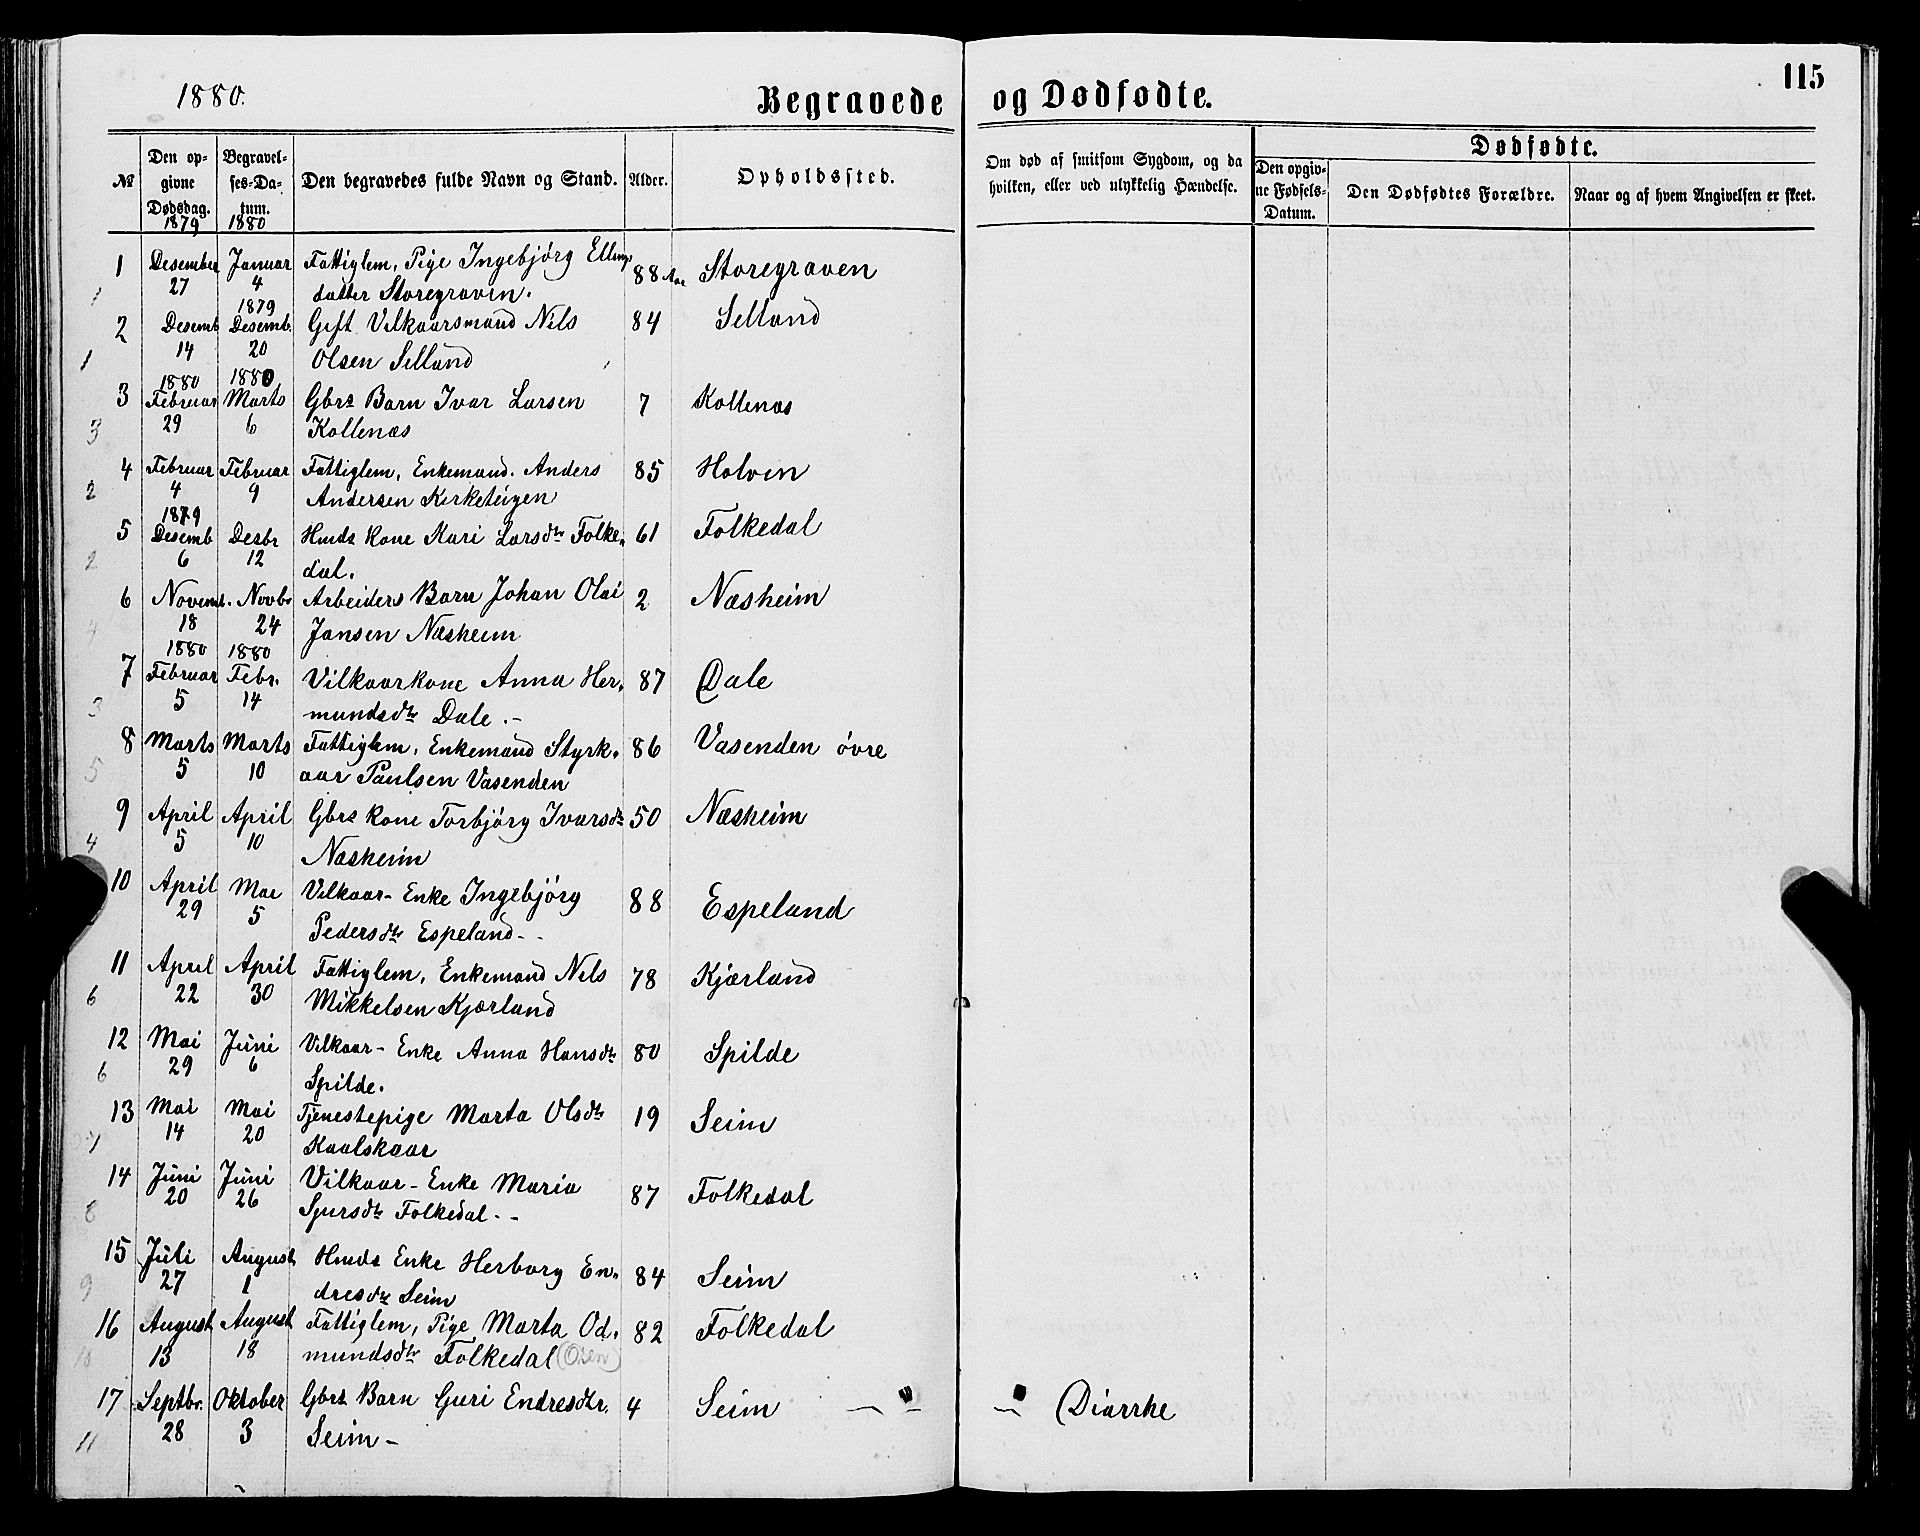 1880.
Begravede og Dødfødte.
115
№
Den opgivne Dødsdag.
1879
Begravelses-Datum.
1880
Den begravedes fulde Navn og Stand.
Alder.
Opholdssted.
Om død af smitsom Sygdom, og da hvilken, eller ved ulykkelig Hændelse.
Dødfødte.
Den opgivne Fødsels-Datum.
Den Dødfødtes Forældre.
Naar og af hvem Angivelsen er skeet.
1 Desember Januar Fattiglem, Pige Ingebjörg Ellings 88 Aar Storegraven
1 27 4 datter Storegraven.
1879
2 Desemb. Desemb. Gift Vilkaarsmand Nils 84 Selland
1 14 20 Olsen Selland
1880 1880
3 Februar Marts Gbrs Barn Ivar Larsen 7 Kollenæs
3 29 6 Kollenæs
4 Februar Februar Fattiglem, Enkemand. Anders 85 Holven
2 4 9 Andersen Kirketeigen
1879
5 Desemb Desbr Hmds Kone Kari Larsdtr Folke- 61 Folkedal
2 6 12 dal.
6 Novemb. Novbr Arbeiders Barn Johan Olai 2 Næsheim
4 18 24 Jansen Næsheim
1880 1880
7 Februar Febr. Vilkaarkone Anna Her- 87 Dale
3 5 14 mundsdtr Dale.-
8 Marts Marts Fattiglem, Enkemand Styrk- 86 Vasenden övre
5 5 10 aar Paulsen Vasenden
9 April April Gbrs Kone Torbjörg Ivarsdtr 50 Næsheim
4 5 10 Næsheim
10 April Mai Vilkaar- Enke Ingebjörg 88 Espeland
29 5 Pedersdtr Espeland- -
11 April April Fattiglem, Enkemand Nils 78 Kjærland
6 22 30 Mikkelsen Kjærland
12 Mai Juni Vilkaar- Enke Anna Hansdtr 80 Spilde
6 29 6 Spilde.
13 Mai Mai Tjenestepige Marta Olsdtr 19 Seim
14 20 Kaalskaar
14 Juni Juni Vilkaar- Enke Maria 87 Folkedal
8 20 26 Sjursdtr Folkedal.-
15 Juli August Hmds Enke Herborg En- 84 Seim
9 27 1 dresdtr Seim
16 August August Fattiglem, Pige Marta Od- 82 Folkedal
10 13 18 mundsdtr Folkedal (Osen)
17 Septbr. Oktober Gbrs Barn Guri Endresdtr. 4 Seim Diarrhe
11 28 3 Seim-